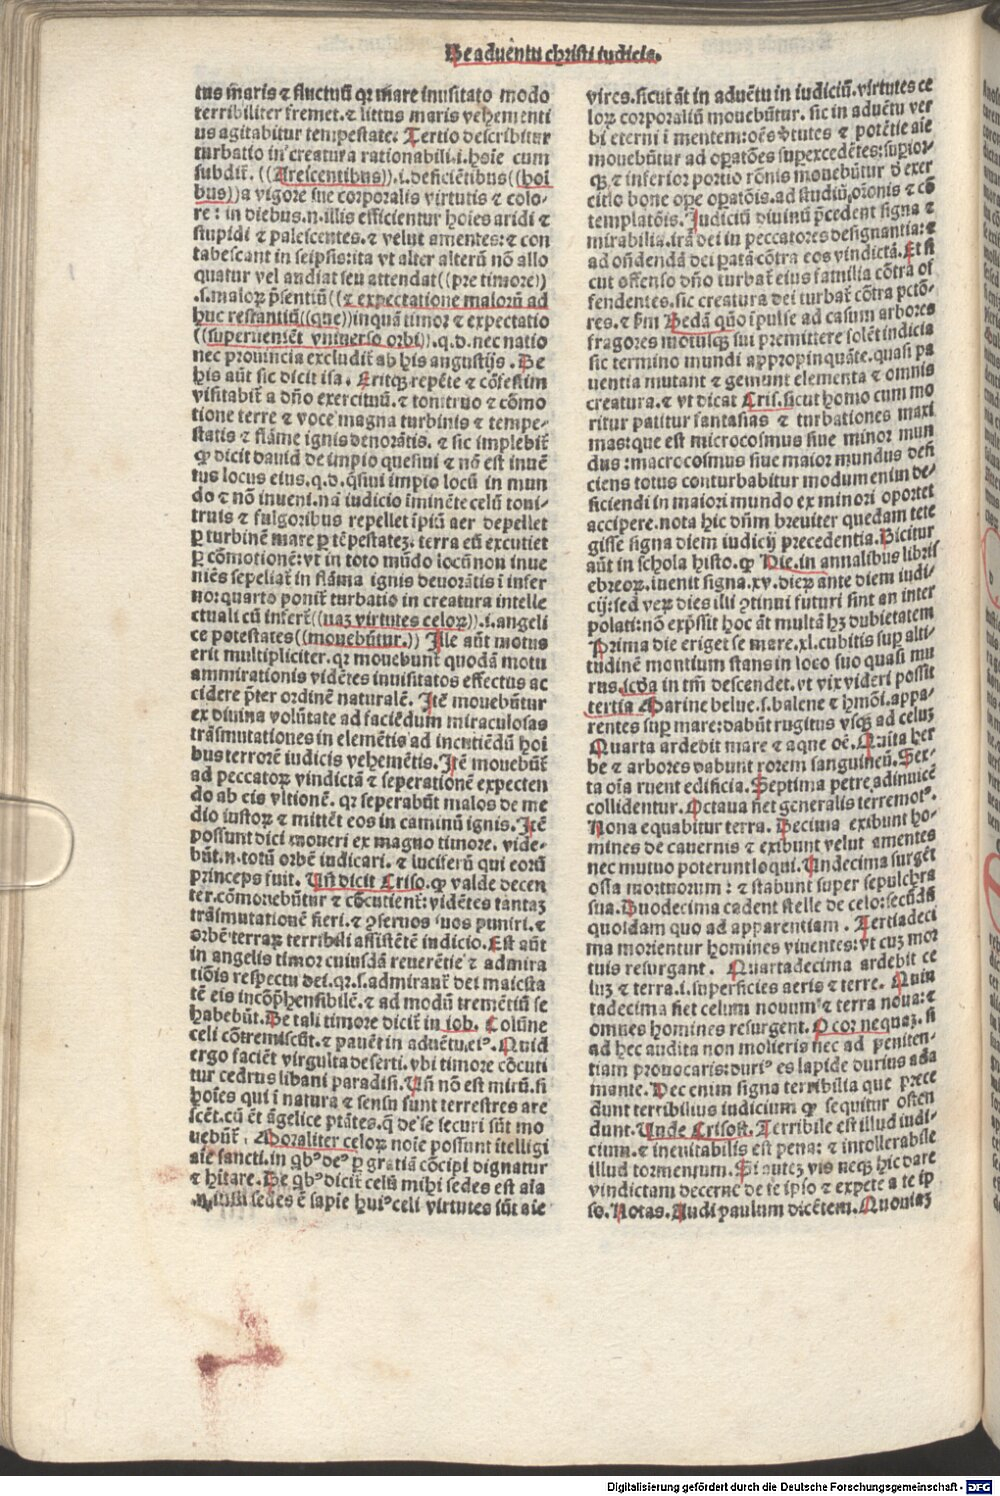 De aduentu christi iudicis.
tus maris ⁊ fluctuū qꝛ mare inusitato modo
terribiliter fremet.⁊ littus maris vehementi
us agitabitur tempestate. Tertio describitur
turbatio in creatura rationabili.i.hoīe cum
subdit̄. ((Arescentibus)).i.deficiētibus((hoī
bus))a vigore siue corporalis virtutis ⁊ colo-
re: in diebus.n.illis efficientur hoīes aridi ⁊
stupidi ⁊ palescentes.⁊ velut amentes:⁊ con
tabescant in seipsis:ita vt alter alterū nō allo
quatur vel audiat seu attendat((pre timore))
.s.maloꝝ p̄sentiū((⁊ expectatione maloꝛū ad
huc restantiū((que))inquā timoꝛ ⁊ expectatio
((superueniēt vniuerso orbi)).q.d.nec natio
nec prouincia excludit̄ ab his angustijs. De
his aūt sic dicit isa. Eritqꝫ repēte ⁊ cōfestim
visitabit̄ a dn̄o exercituū.⁊ tonitruo ⁊ cōmo
tione terre ⁊ voce magna turbinis ⁊ tempe-
statis ⁊ flāme ignis deuorātis. ⁊ sic implebit̄
ꝙ dicit dauid de impio quesiui ⁊ nō est inuē
tus locus eius.q.d.q̄siui impio locū in mun
do ⁊ nō inueni.nā iudicio īminēte celū toni-
truis ⁊ fulgoribus repellet īpiū aer depellet
ꝑ turbinē mare ꝑ tēpestateꝫ. terra eū excutiet
ꝑ cōmotionē:vt in toto mūdo locū non inue
niēs sepeliat̄ in flāma ignis deuorātis ī infer
no:quarto ponit̄ turbatio in creatura intelle
ctuali cū infert̄((naꝫ virtutes celoꝝ)).i.angeli
ce potestates((mouebūtur.)) Ille aūt motus
erit multipliciter.qꝛ mouebunt̄ quodā motu
ammirationis vidētes inuisitatos effectus ac
cidere p̄ter ordinē naturalē. Itē mouebūtur
ex diuina volūtate ad faciēdum miraculosas
trāsmutationes in elemētis ad incutiēdū hoī
bus terrorē iudicis vehemētis. Itē mouebūt̄
ad peccatoꝝ vindictā ⁊ seperationē expecten
do ab eis vltionē. qꝛ seperabūt malos de me
dio iustoꝝ ⁊ mittēt eos in caminū ignis. Itē
possunt dici moueri ex magno timore. vide-
būt.n.totū orbē iudicari. ⁊ luciferū qui eorū
princeps fuit. Vn̄ dicit Criso.ꝙ valde decen
ter.cōmouebūtur ⁊ cōcutient̄:vidētes tantaꝫ
trāsmutationē fieri.⁊ ꝯseruos suos puniri.⁊
orbē terraꝝ terribili assistētē iudicio. Est aūt
in angelis timor cuiusdā reuerētie ⁊ admira
tiōis respectu dei.qꝛ.s.admirant̄ dei maiesta
tē eis incōp̄hensibilē.⁊ ad modū tremētiū se
habebūt. De tali timore dicit̄ in iob. Colūne
celi cōtremiscūt.⁊ pauēt in aduētu.eiꝰ. Quid
ergo faciēt virgulta deserti.vbi timore cōcuti
tur cedrus libani paradisi. Vn̄ nō est mirū.si
hoīes qui ī natura ⁊ sensu sunt terrestres are
scēt.cū ēt āgelice ptātes.q̄ de se securi sūt mo
uebūt̄. Moraliter celoꝝ noīe possunt ītelligi
aīe sancti.in qͥbꝰ deꝰ ꝑ gratiā cōcipi dignatur
⁊ hītare. De qͥbꝰ dicit̄ celū mihi sedes est aīa
.n.iusti sedes ē sapīe huiꝰ celi virtutes sūt aīe
vires.sicut āt in aduētu in iudiciū.virtutes ce
loꝝ corporaliū mouebūtur. sic in aduētu ver
bi eterni ī mentem:oēs v̄tutes ⁊ potētie aīe
mouebūtur ad oꝑatōes superexcedētes:supior-
qꝫ ⁊ inferior portio rōnis mouebūtur ꝺ exer
citio bone oꝑe oꝑatōis.ad studiū oꝛonis ⁊ cō
templatōis. Iudiciū diuinū p̄cedent signa ⁊
mirabilia.irā dei in peccatores designantia:⁊
ad on̄dendā dei ꝑatā cōtra eos vindictā. Et si
cut offenso dn̄o turbat̄ eius familia cōtra of
fendentes.sic creatura dei turbat̄ cōtra pctō-
res.⁊ ẜm Bedā qn̄o īpulse ad casum arbores
fragores motusqꝫ sui premittere solēt indicia
sic termino mundi appropinquāte.quasi pa
uentia mutant ⁊ gemunt elementa ⁊ omnis
creatura.⁊ vt dicat Cris.sicut homo cum mo
ritur patitur fantasias ⁊ turbationes maxi
mas:que est microcosmus siue minor mun
dus:macrocosmus siue maior mundus defi
ciens totus conturbabitur modum enim de-
ficiendi in maiori mundo ex minori oportet
accipere.nota hic dn̄m breuiter quedam tete
gisse signa diem iudicij precedentia. Dicitur
aūt in schola histo.ꝙ Die.in annalibus libris
ebreoꝝ.iuenit signa.xv.dieꝝ ante diem iudi-
cij:sed veꝝ dies illi ꝯtinui futuri sint an inter
polati:nō exp̄ssit hoc āt multā hꝫ dubietatem
Prima die eriget se mare.xl.cubitis suꝑ alti-
tudinē montium stans in loco suo quasi mu
rus.scd̄a in tm̄ descendet.vt vix videri possit
tertia Marine belue.s.balene ⁊ hmōi.appa-
rentes suꝑ mare:dabūt rugitus vsqꝫ ad celuꝫ
Quarta ardebit mare ⁊ aque oē. Quīta her
be ⁊ arbores dabunt rorem sanguineū. Sex-
ta oīa ruent edificia. Septima petre adinuicē
collidentur. Octaua fiet generalis terremotꝰ.
Nona equabitur terra. Decima exibunt ho-
mines de cauernis ⁊ exibunt velut amentes
nec mutuo poterunt loqui. Vndecima surgēt
ossa mortuorum: ⁊ stabunt super sepulchra
sua. Duodecima cadent stelle de celo:secūdū
quosdam quo ad apparentiam. Tertiadeci
ma morientur homines viuentes:vt cuꝫ mor
tuis resurgant. Quartadecima ardebit ce
luꝫ ⁊ terra.i.superficies aeris ⁊ terre. Quin
tadecima fiet celum nouum ⁊ terra noua:⁊
omnes homines resurgent. O cor nequaꝫ. si
ad hec audita non molieris nec ad peniten-
tiam prouocaris:duriꝰ es lapide durius ada
mante. Hec enim signa terribilia que prece
dunt terribilius iudicium ꝙ sequitur osten
dunt. Vnde Crisost. Terribile est illud iudi-
cium.⁊ ineuitabilis est pena: ⁊ intollerabile
illud tormentum. Si auteꝫ vis neqꝫ hic dare
vindictam decerne de te ipso ⁊ expete a te ip
so. Notas. Audi paulum dicētem. Quoniaꝫ
Digitalisierung gefördert durch die Deutsche Forschungsgemeinschaft - DFG